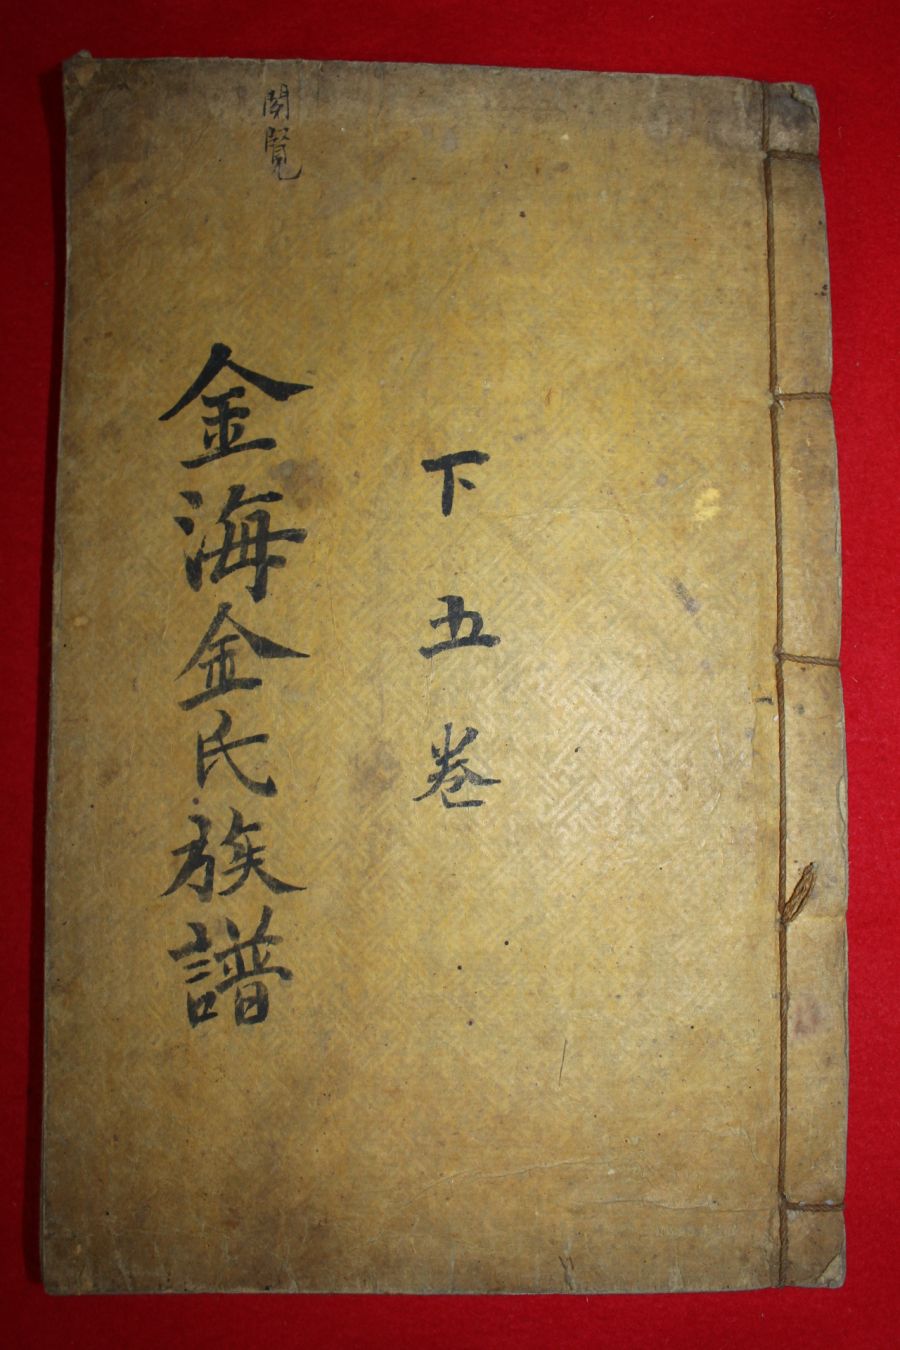 閱覽
下五卷
金海金氏族譜